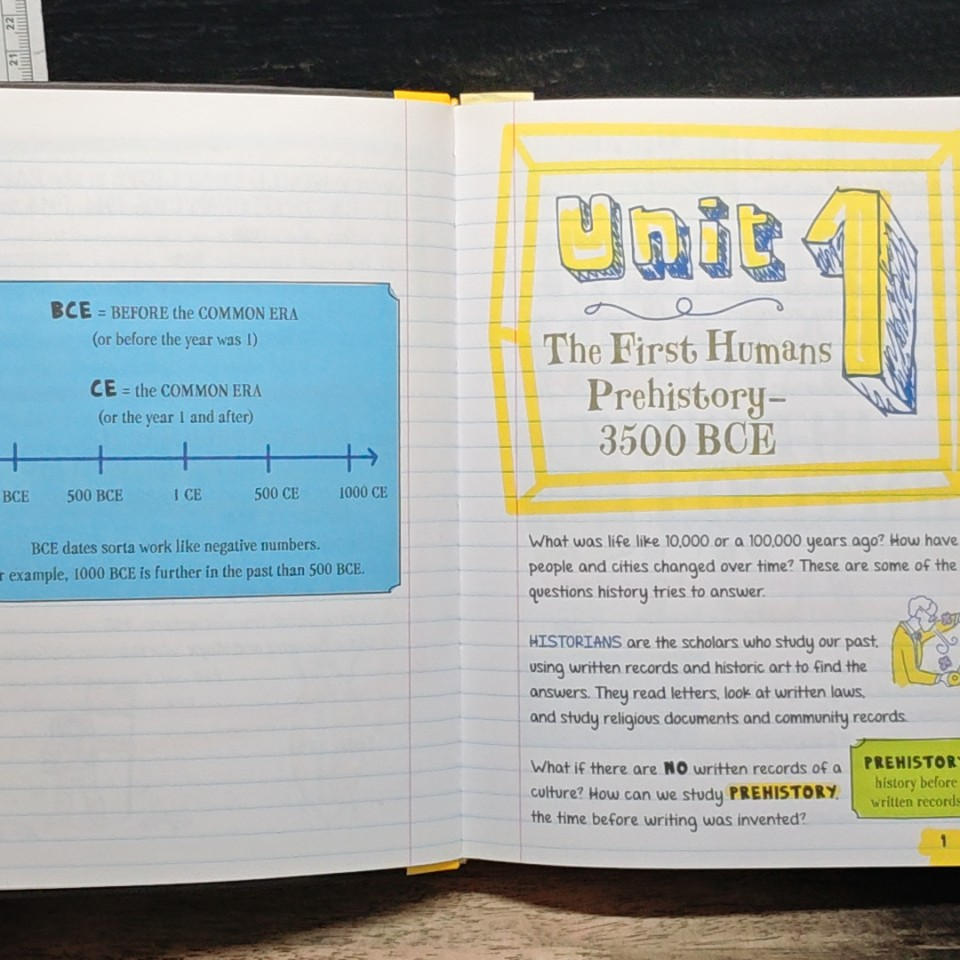 22
21
BCE = BEFORE the COMMON ERA
(or before the year was 1)
CE = the COMMON ERA
(or the year 1 and after)
BCE 500 BCE 1 CE 500 CE 1000 CE
BCE dates sorta work like negative numbers.
r example, 1000 BCE is further in the past than 500 BCE.
Unit 1
The First Humans
Prehistory–
3500 BCE
What was life like 10,000 or a 100,000 years ago? How have
people and cities changed over time? These are some of the
questions history tries to answer.
HISTORIANS are the scholars who study our past,
using written records and historic art to find the
answers. They read letters, look at written laws,
and study religious documents and community records.
What if there are NO written records of a
culture? How can we study PREHISTORY,
the time before writing was invented?
PREHISTORY
history before
written records
1